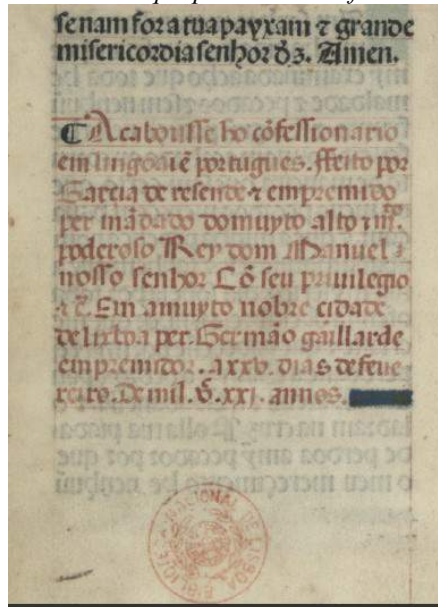 se nam fora tua payxam ⁊ grande
misericordia senhor d̄z. Amen.
¶ Acabousse ho cõfessionario
em lingoaiẽ portugues. ffeito por
Garcia de resende ⁊ empremido
per mãdado do muyto alto ⁊
poderoso Rey dom Manuel
nosso senhor Cõ seu priuilegio
Em a muyto nobre cidade
de lixboa per. Germão gaillarde
empremidor. a xxv. dias de feue-
reiro. De mil. v̄. xxj. annos.